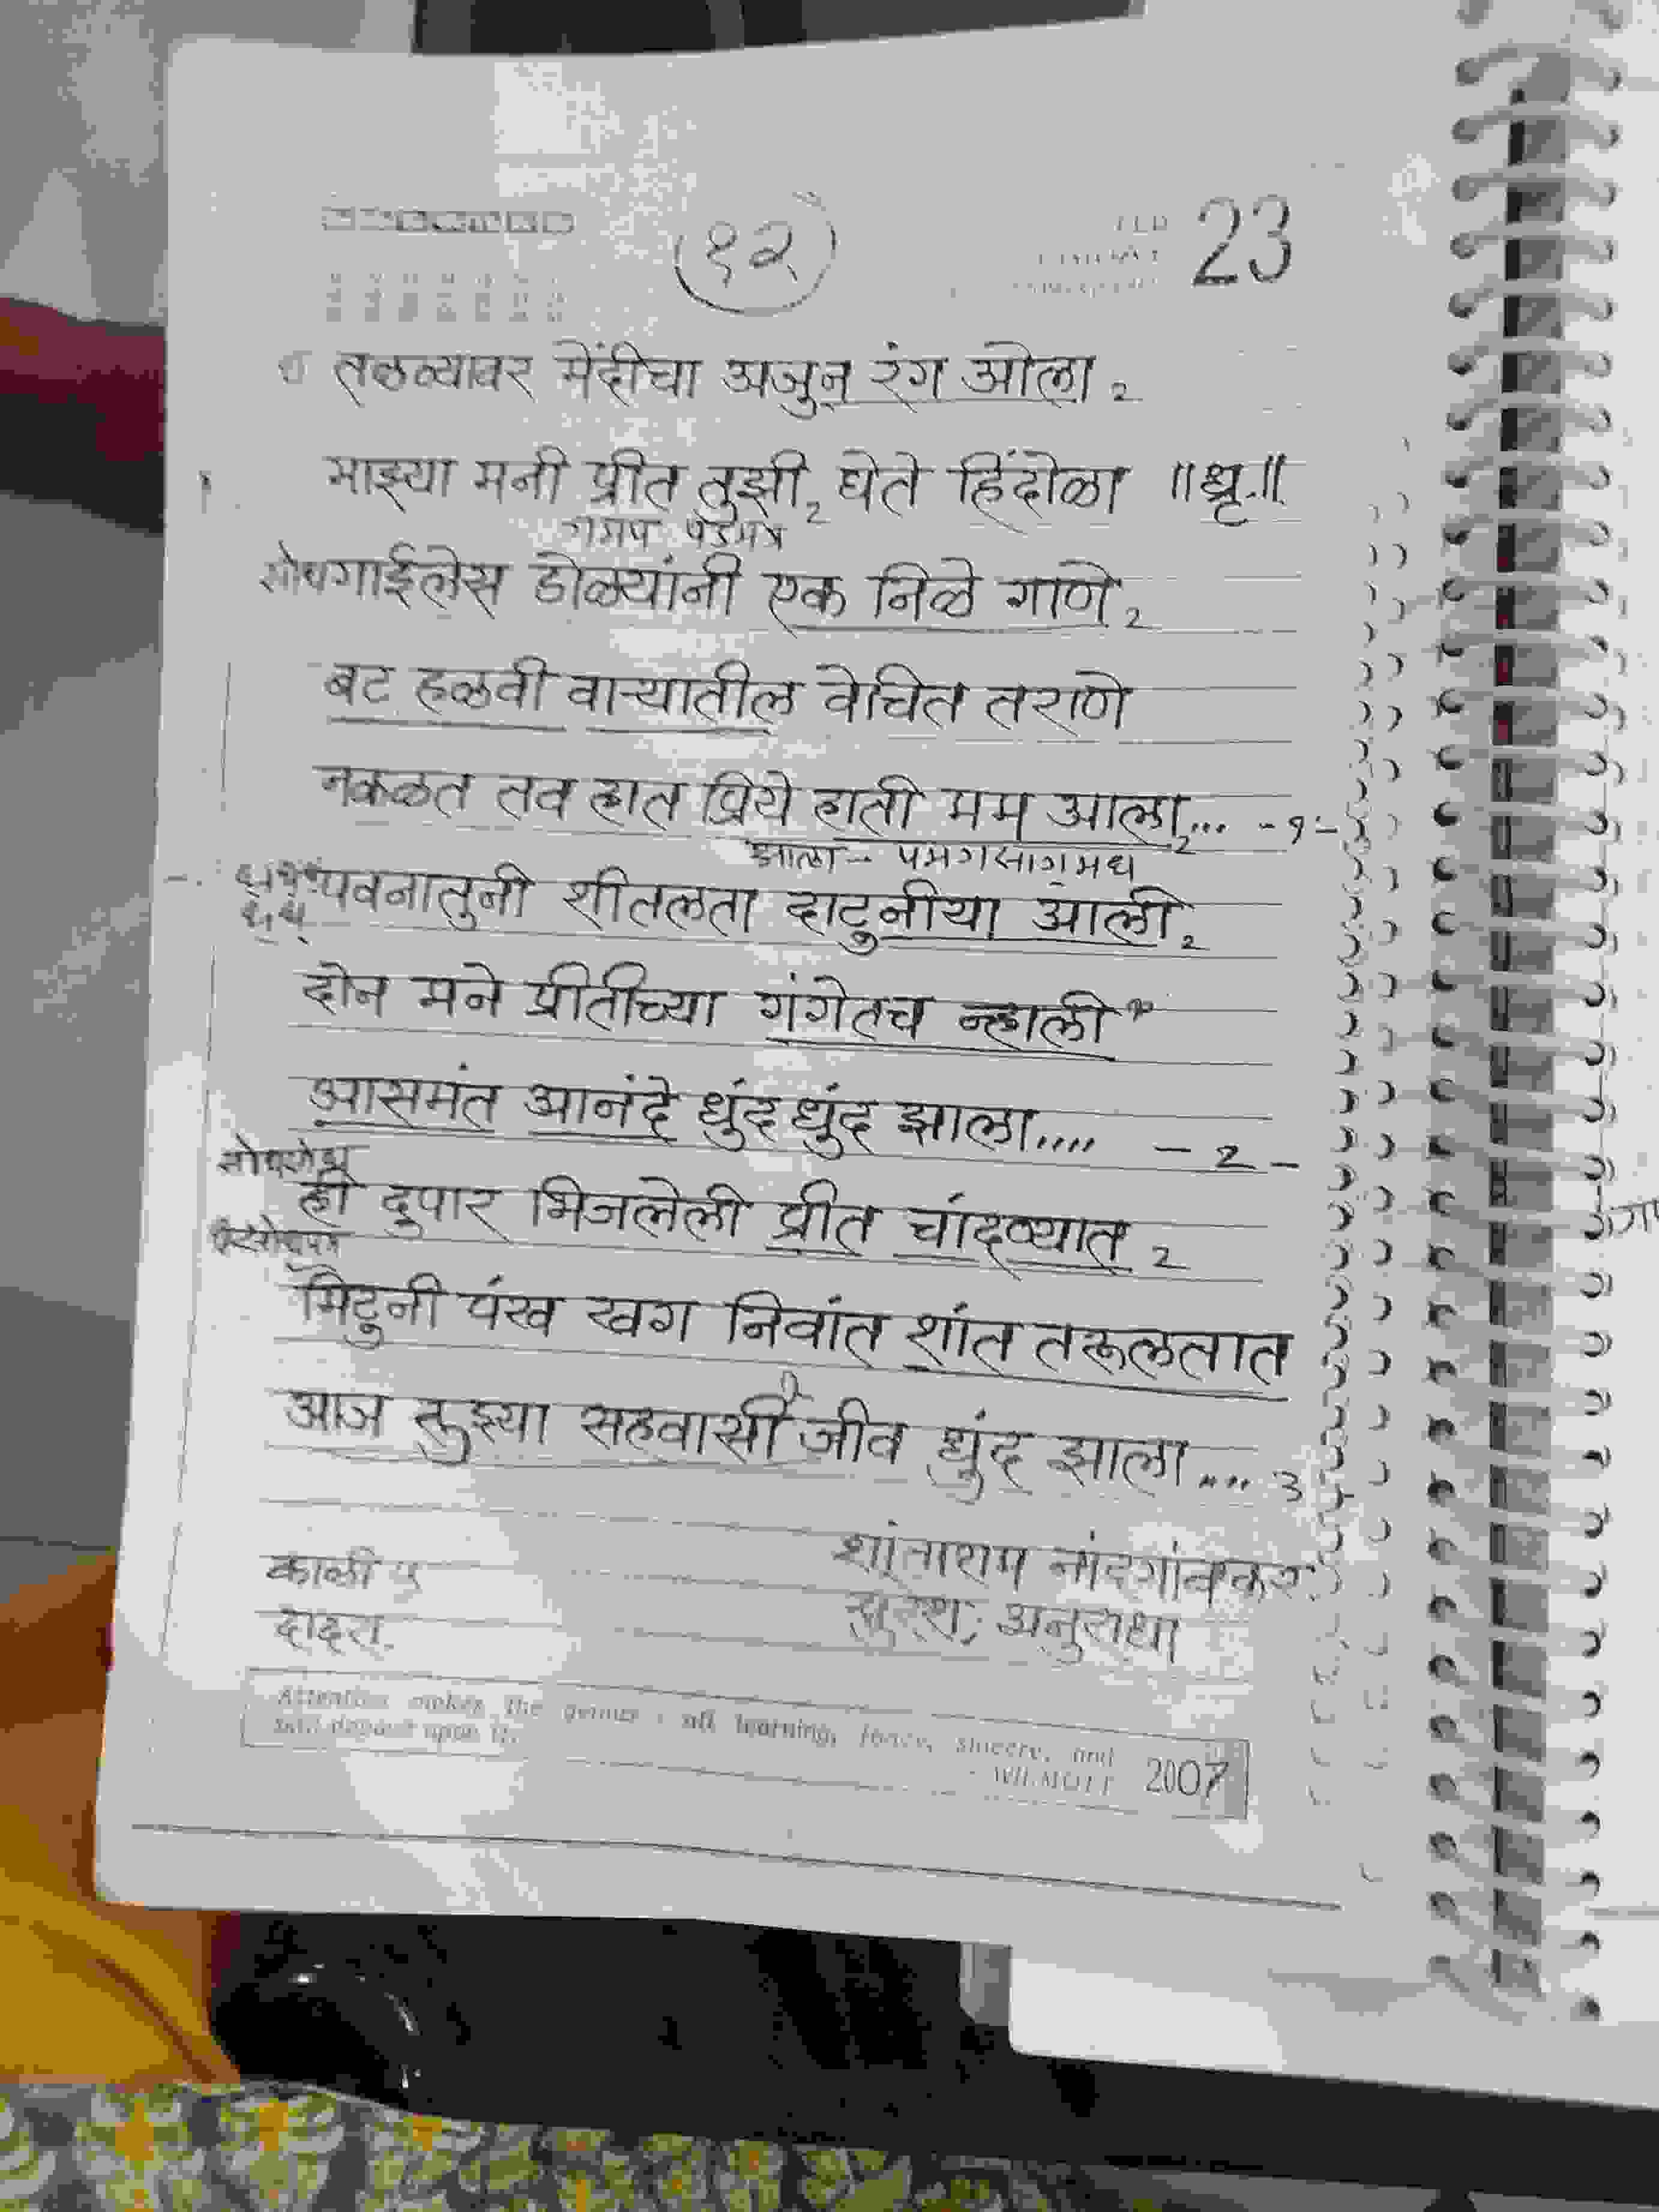 १२
23
तळव्यावर मेंदीचा अजुन रंग ओला २
माझ्या मनी प्रीत तुझी २ घेते हिंदोळा ॥धृ.॥
गाईलेस डोळ्यांनी एक निळे गाणे २
बट हळवी वाऱ्यातील वेचित तराणे
नकळत तव हात प्रिये हाती मम आला २... -१-
झाला -- पमगसागमध
पवनातुनी शीतलता दाटुनीया आली २
दोन मने प्रीतीच्या गंगेतच न्हाली
आसमंत आनंदे धुंद धुंद झाला.... - २ -
ही दुपार भिजलेली प्रीत चांदव्यात २
मिटुनी पंख खग निवांत शांत तरूलतात
आज तुझ्या सहवासी जीव धुंद झाला.... ३
शांताराम नांदगांवकर
काळी ५
सुरेश, अनुराधा
दादरा.
Attention makes the genius : all learning, fancy, sincere, and
skill depend upon it.
- WILMOTT 2007